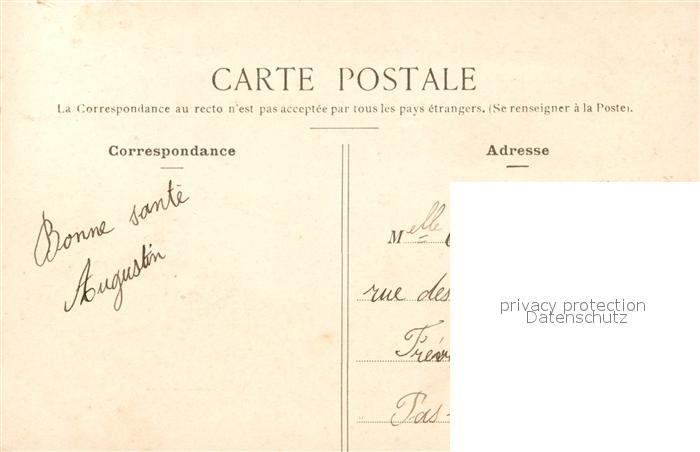 CARTE POSTALE
La Correspondance au recto n'est pas acceptée par tous les pays étrangers. (Se renseigner à la Poste).
Correspondance
Adresse
Bonne santé
Augustin
Melle
rue des
Pas-
privacy protection
Datenschutz